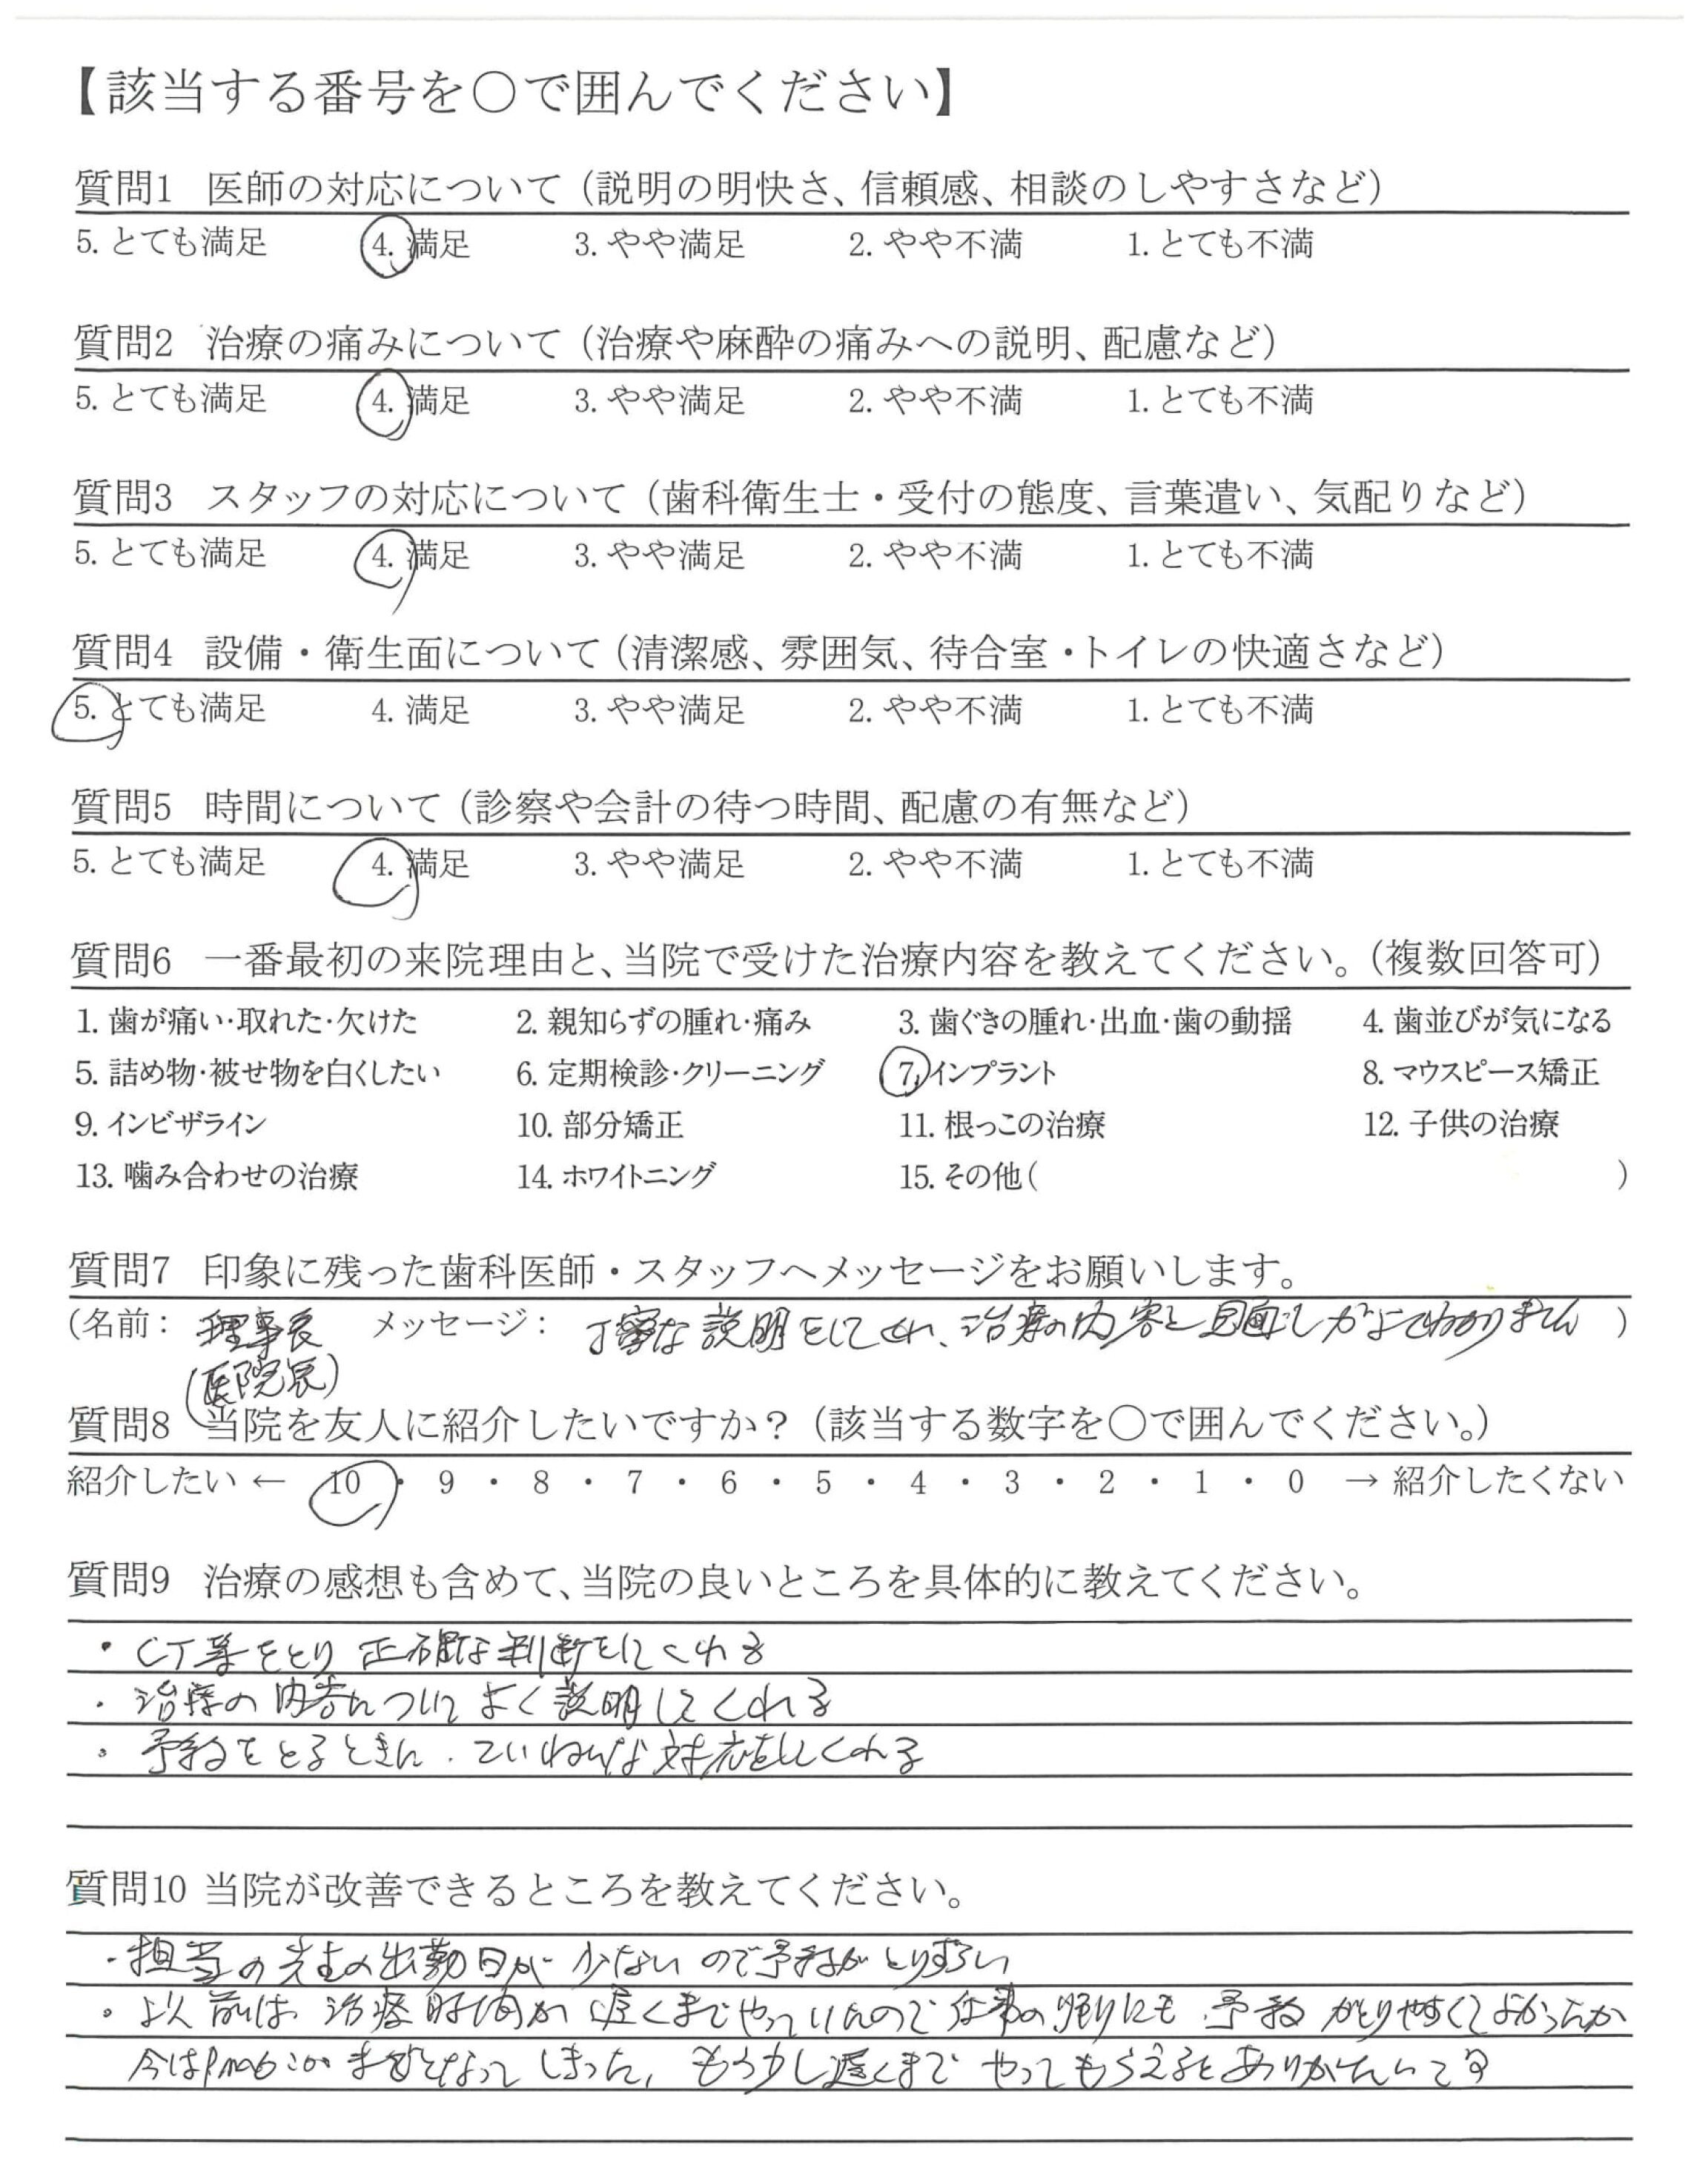 【該当する番号を〇で囲んでください】
質問1 医師の対応について（説明の明快さ、信頼感、相談のしやすさなど）
5. とても満足 4. 満足 3. やや満足 2. やや不満 1. とても不満
質問2 治療の痛みについて（治療や麻酔の痛みへの説明、配慮など）
5. とても満足 4. 満足 3. やや満足 2. やや不満 1. とても不満
質問3 スタッフの対応について（歯科衛生士・受付の態度、言葉遣い、気配りなど）
5. とても満足 4. 満足 3. やや満足 2. やや不満 1. とても不満
質問4 設備・衛生面について（清潔感、雰囲気、待合室・トイレの快適さなど）
5. とても満足 4. 満足 3. やや満足 2. やや不満 1. とても不満
質問5 時間について（診察や会計の待つ時間、配慮の有無など）
5. とても満足 4. 満足 3. やや満足 2. やや不満 1. とても不満
質問6 一番最初の来院理由と、当院で受けた治療内容を教えてください。（複数回答可）
1. 歯が痛い・取れた・欠けた 2. 親知らずの腫れ・痛み 3. 歯ぐきの腫れ・出血・歯の動揺 4. 歯並びが気になる
5. 詰め物・被せ物を白くしたい 6. 定期検診・クリーニング 7. インプラント 8. マウスピース矯正
9. インビザライン 10. 部分矯正 11. 根っこの治療 12. 子供の治療
13. 噛み合わせの治療 14. ホワイトニング 15. その他（ ）
質問7 印象に残った歯科医師・スタッフへメッセージをお願いします。
（名前： 理事長 メッセージ： 丁寧な説明をしてくれ、治療の内容と ）
(医院長)
質問8 当院を友人に紹介したいですか？（該当する数字を〇で囲んでください。）
紹介したい ← 10 ・ 9 ・ 8 ・ 7 ・ 6 ・ 5 ・ 4 ・ 3 ・ 2 ・ 1 ・ 0 → 紹介したくない
質問9 治療の感想も含めて、当院の良いところを具体的に教えてください。
・CT等をとり正確な判断をしてくれる
・治療の内容について よく説明してくれる
・予約をとるときに、ていねいな対応をしてくれる
質問10 当院が改善できるところを教えてください。
・担当の先生の出勤日が少ないので予約がとりずらい
・以前は、治療時間が遅くまでやっていたので仕事の帰りにも予約がとりやすくてよかったが
今はPM6 までとなってしまった、もう少し遅くまでやってもらえるとありがたいです